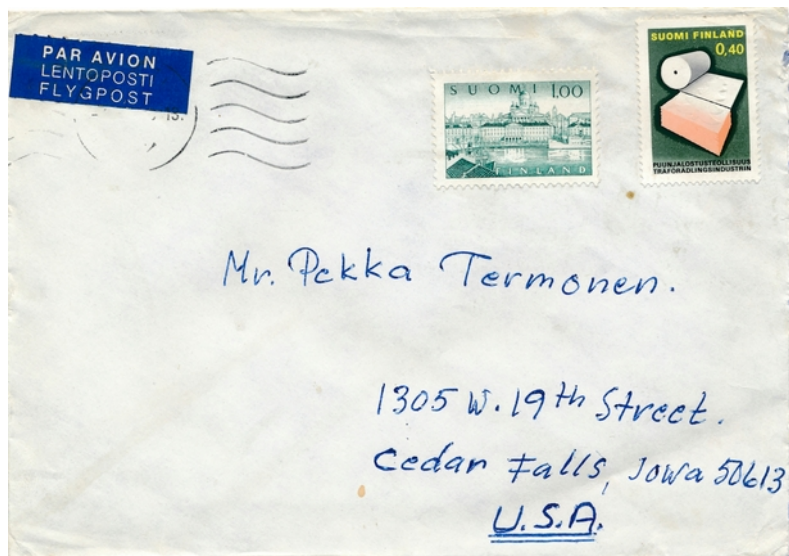 PAR AVION
LENTOPOSTI
FLYGPOST
SUOMI 1,00
FINLAND
SUOMI FINLAND
0,40
PUUNJALOSTUSTEOLLISUUS
TRÄFÖRÄDLINGSINDUSTRIN
Mr. Pekka Termonen.
1305 W. 19th Street.
Cedar Falls, Iowa 50613
U.S.A.